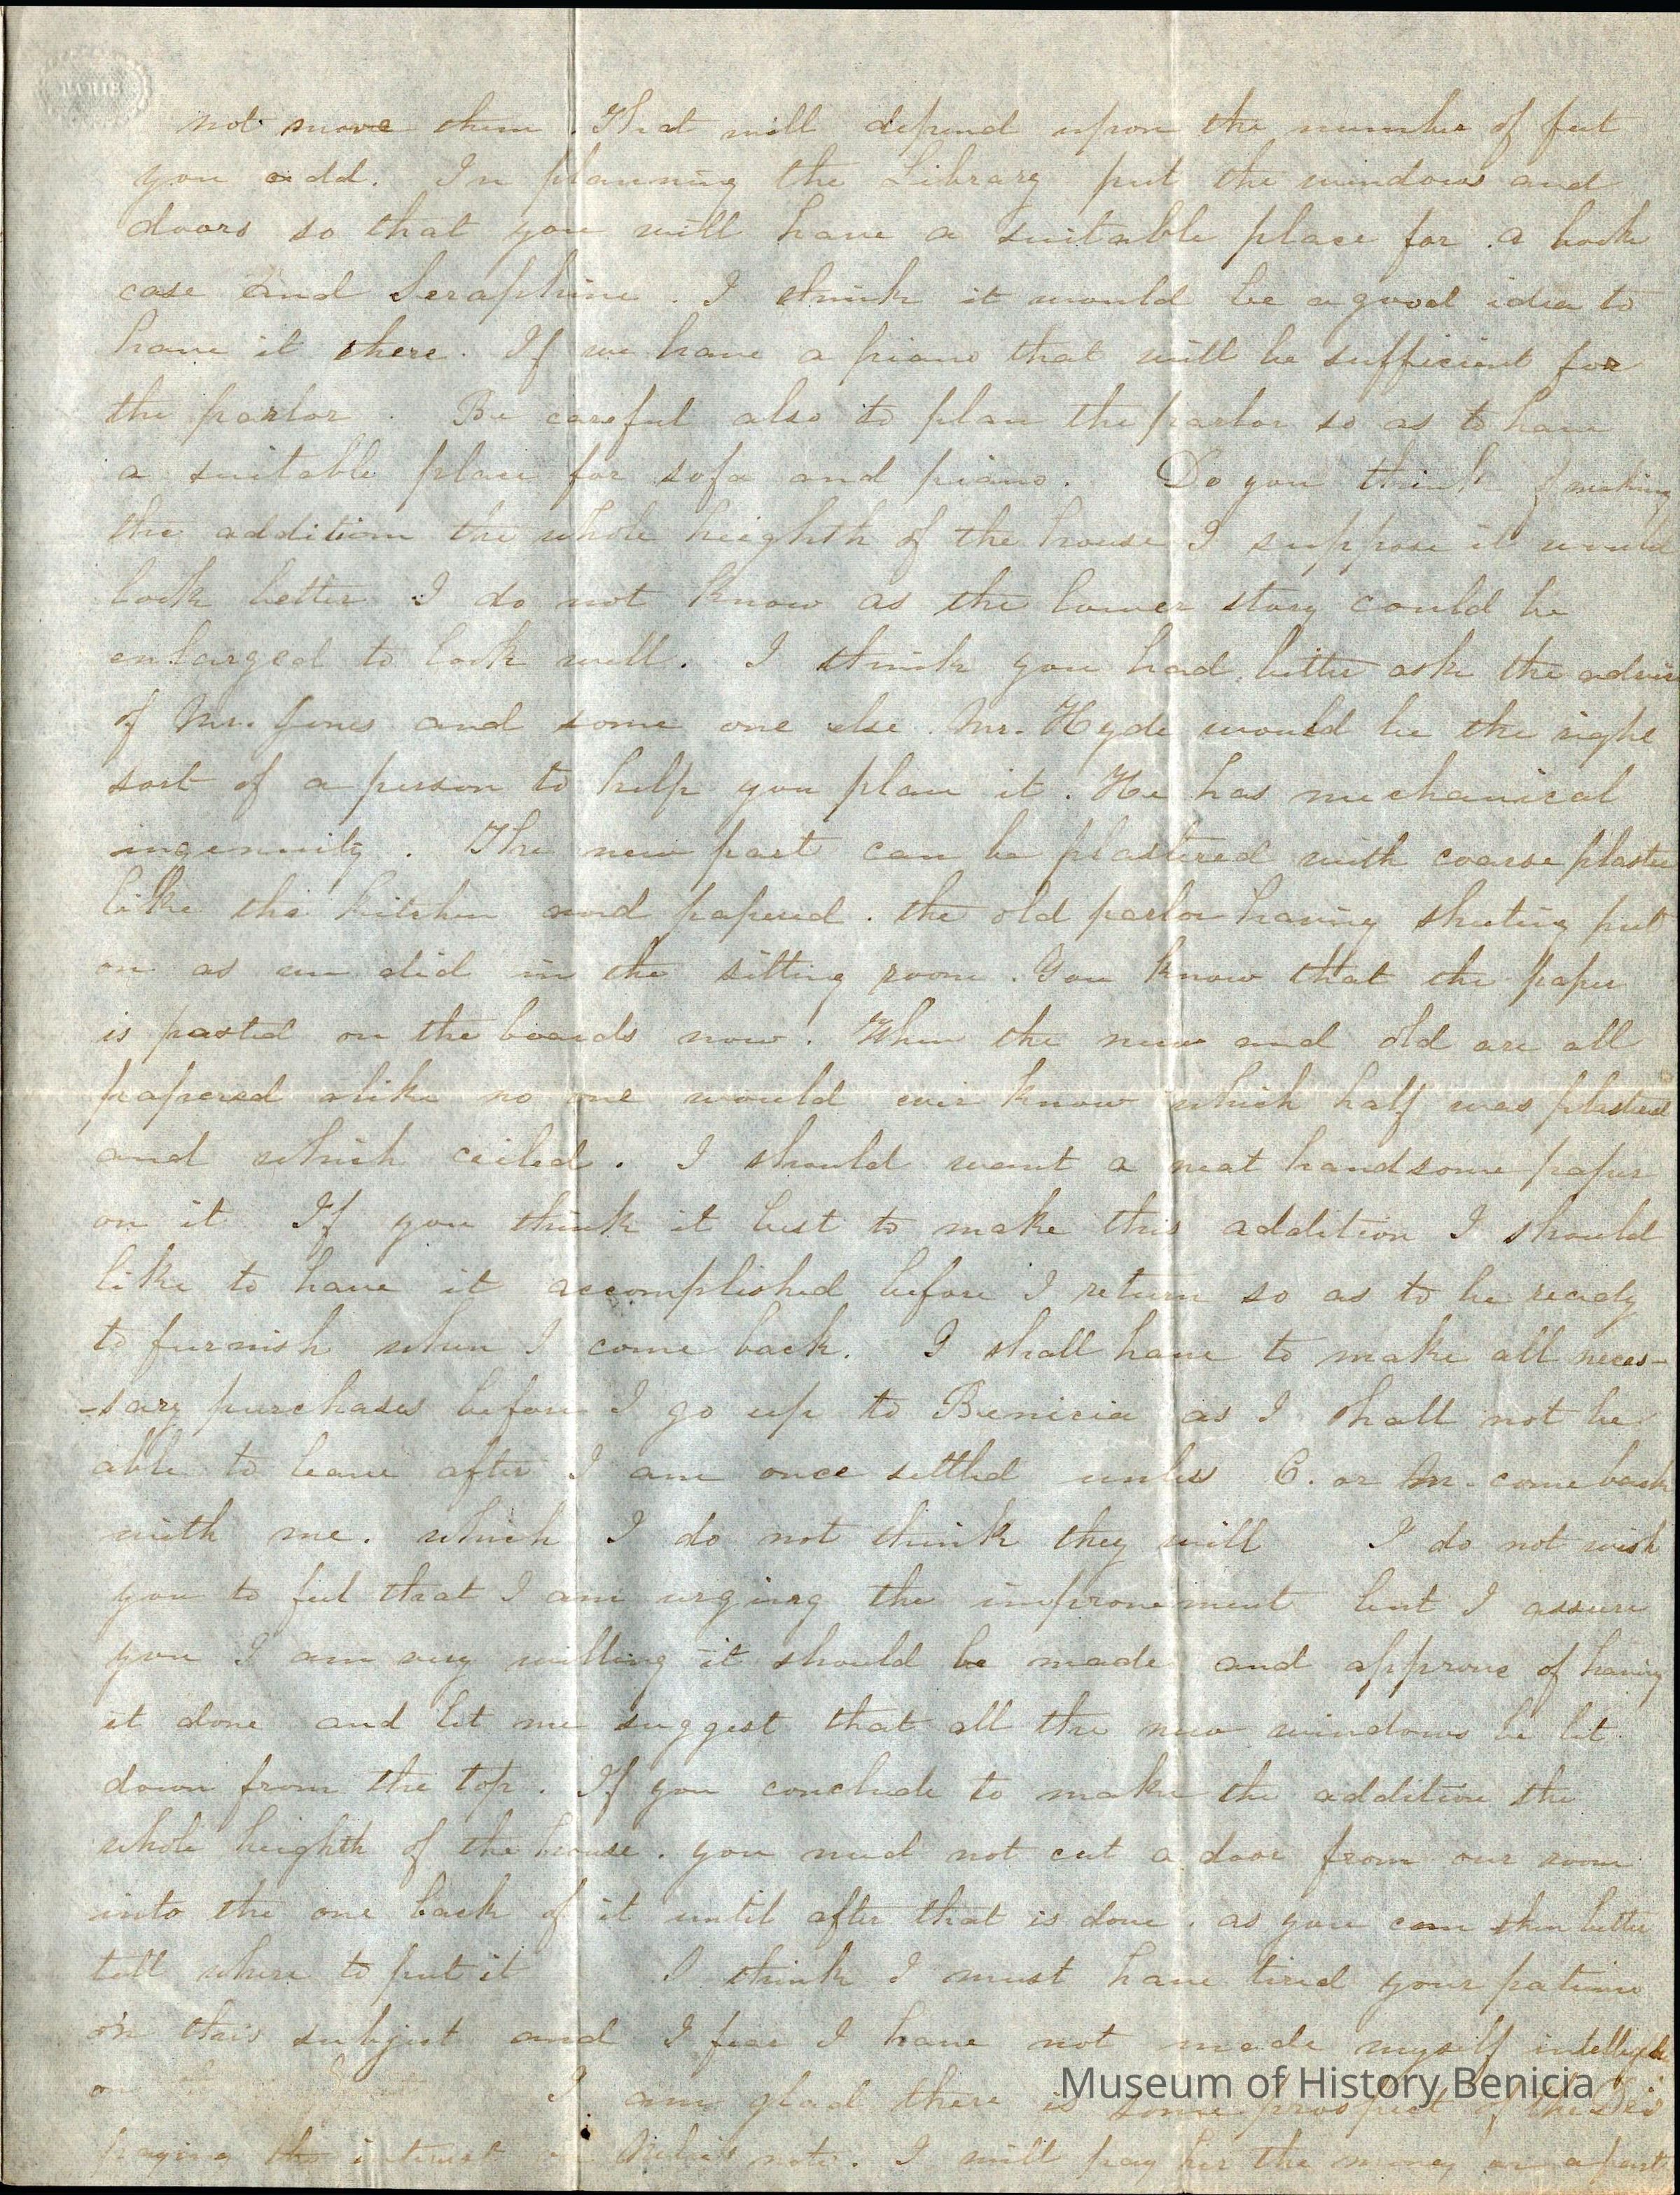 PARIS
not move them. That will depend upon the number of feet
you add. In planning the Library put the windows and
doors so that you will have a suitable place for a book
case and Seraphine. I think it would be a good idea to
have it there. If we have a piano that will be sufficient for
the parlor. Be careful also to plan the parlor so as to have
a suitable place for sofa and piano. Do you think of making
the addition the whole heighth of the house I suppose it would
look better I do not know as the lower story could be
enlarged to look well. I think you had better ask the advice
of Mr. Jones and some one else Mr. Hyde would be the right
sort of a person to help you plan it. He has mechanical
ingenuity. The new part can be plastered with coarse plaster
like the kitchen and papered. the old parlor having sheeting put
on as we did in the sitting room. You know that the paper
is pasted on the boards now. When the new and old are all
papered alike no one would ever know which half was plastered
and which ceiled. I should want a neat handsome paper
on it If you think it best to make this addition I should
like to have it accomplished before I return so as to be ready
to furnish when I come back. I shall have to make all neces-
-sary purchases before I go up to Benicia as I shall not be
able to leave after I am once settled unless C. or M. come back
with me. which I do not think they will I do not wish
you to feel that I am urging the improvement but I assure
you I am very willing it should be made and approve of having
it done and let me suggest that all the new windows be let
down from the top. If you conclude to make the addition the
whole heighth of the house. you need not cut a door from our room
into the one back of it until after that is done. as you can then better
tell where to put it I think I must have tired your patience
on this subject and I fear I have not made myself intelligible
on I am glad there is some prospect of the
paying the interest on note. I will pay her the money or a part
Museum of History Benicia